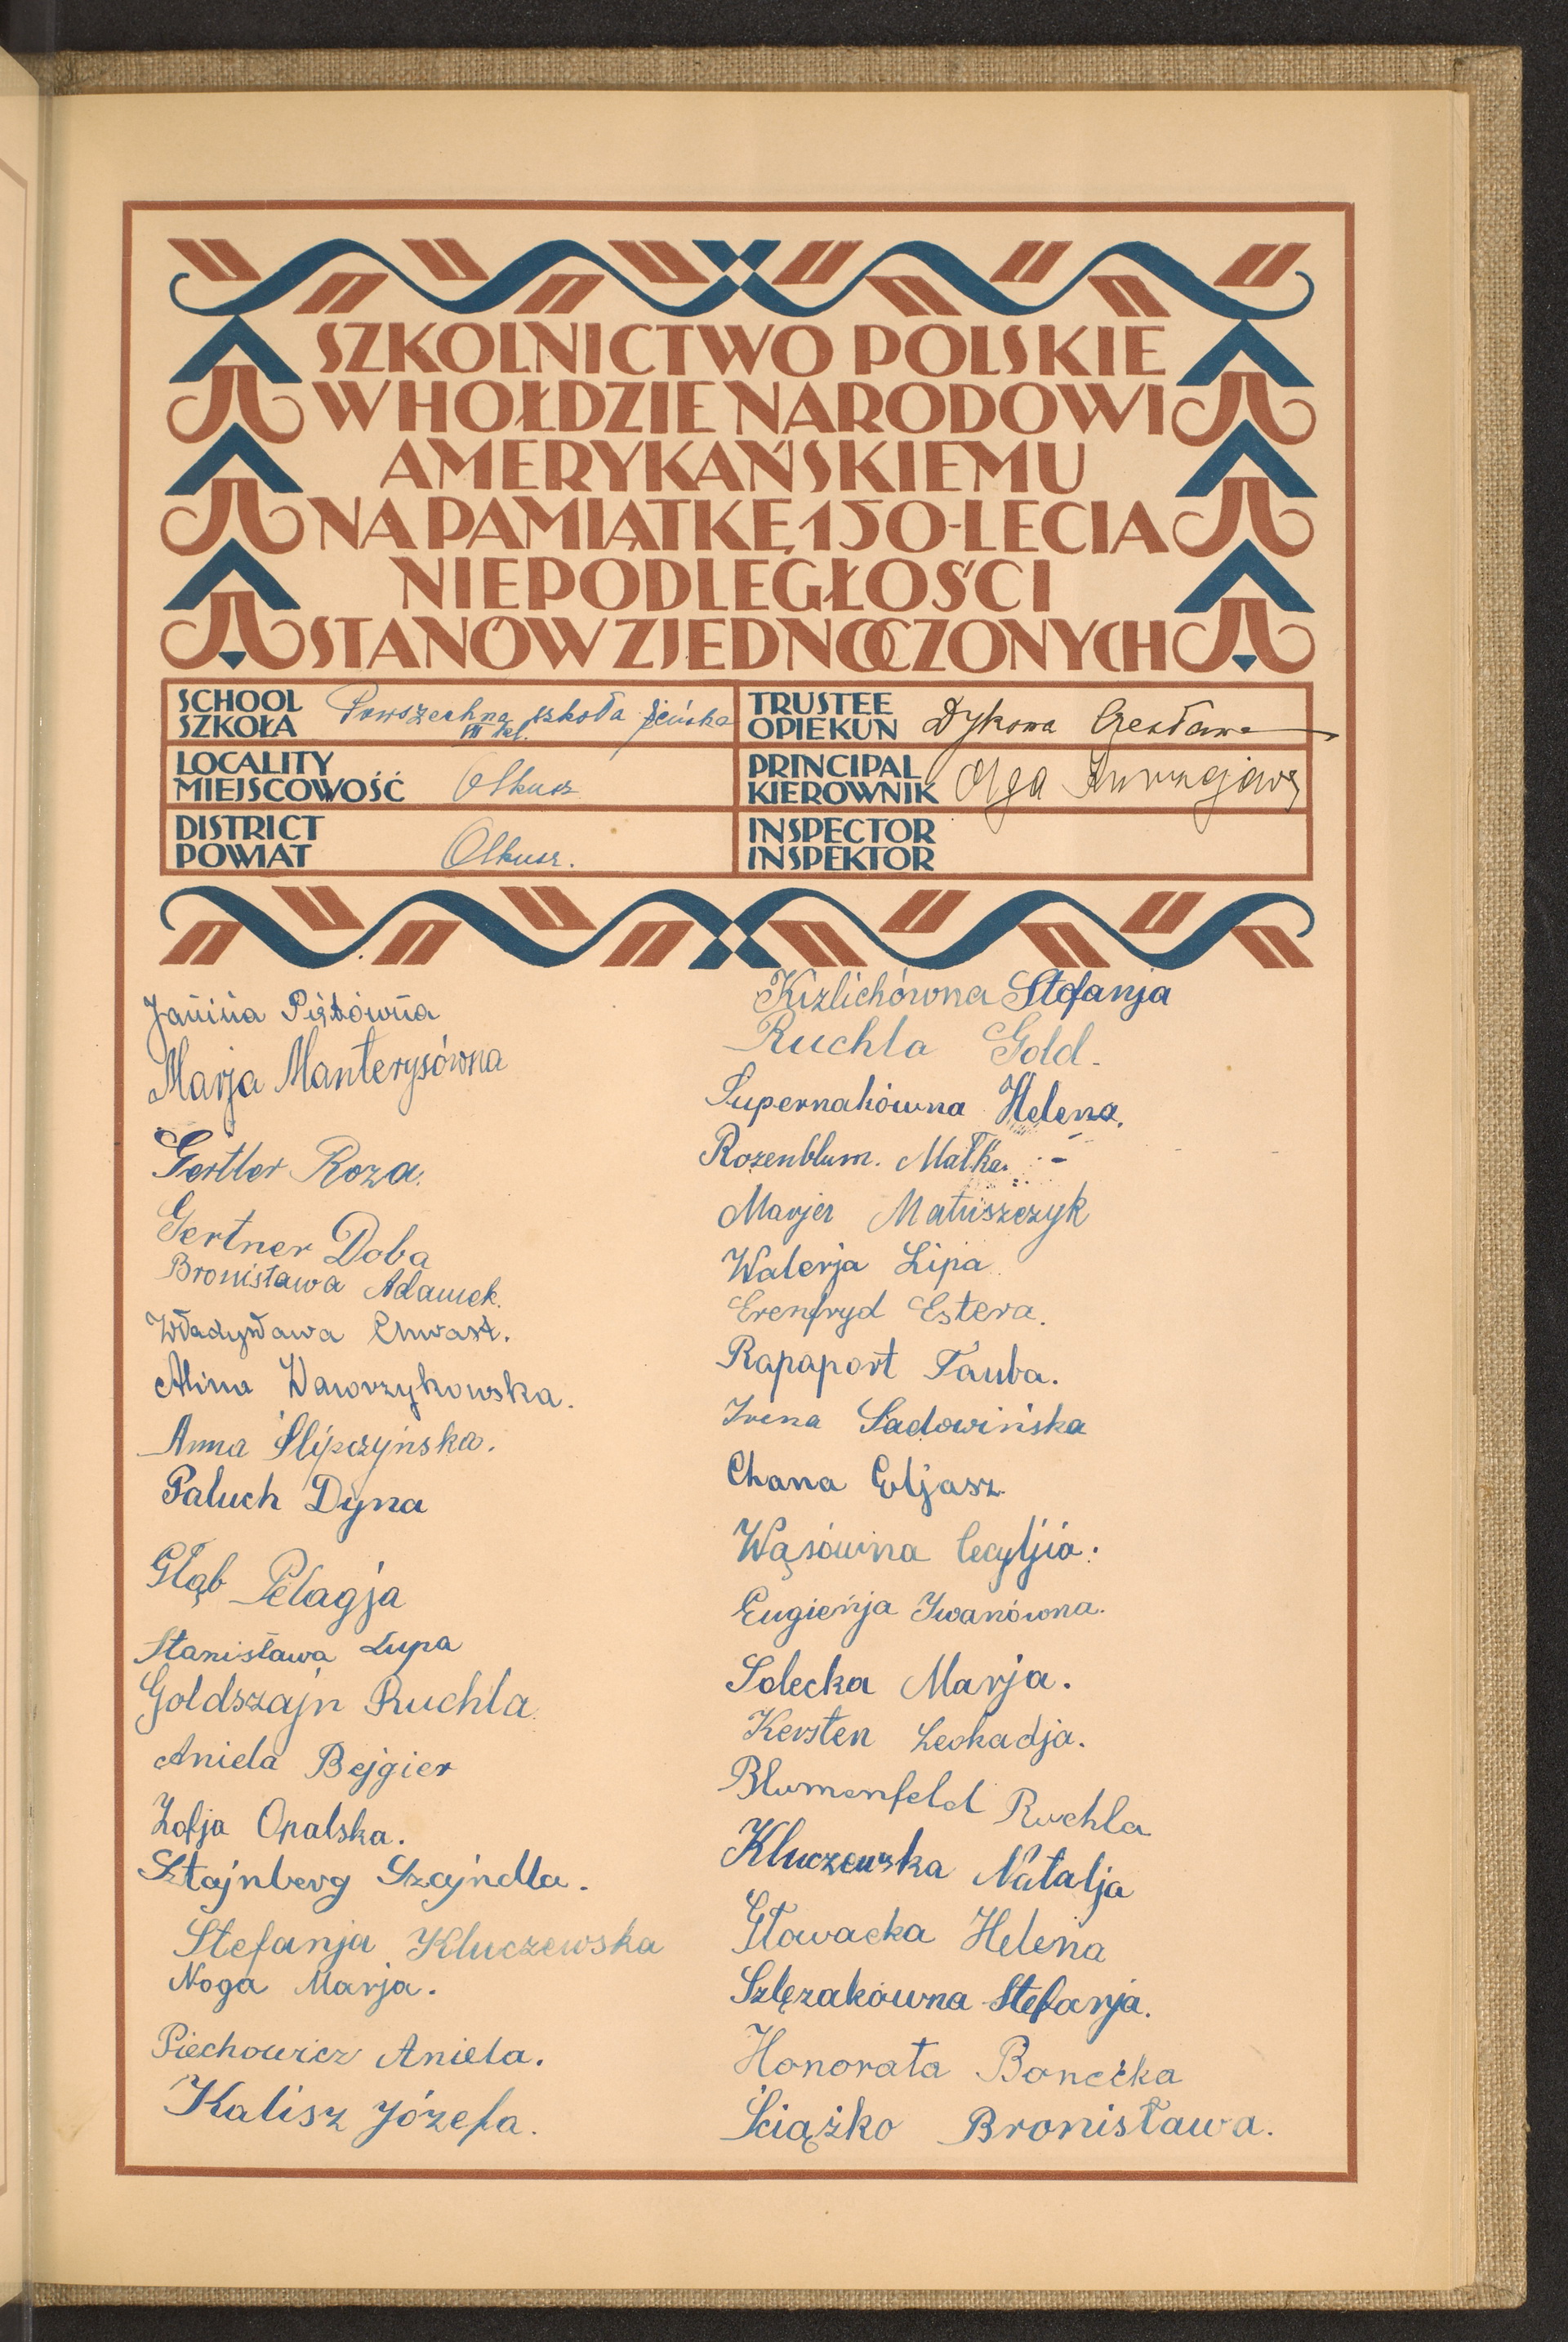 SZKOLNICTWO POLSKIE
W HOŁDZIE NARODOWI
AMERYKAŃSKIEMU
NA PAMIĄTKĘ 150-LECIA
NIEPODLEGŁOŚCI
STANÓW ZJEDNOCZONYCH
SCHOOL
SZKOŁA Powszechna szkoła żeńska
VII kl.
TRUSTEE
OPIEKUN Dykowa Czesława
LOCALITY
MIEJSCOWOŚĆ Olkusz
PRINCIPAL
KIEROWNIK Olga
DISTRICT
POWIAT Olkusz.
INSPECTOR
INSPEKTOR
Janina
Marja Manterysówna
Gertler Roza.
Gertner Doba
Bronisława Adamek.
Władysława Chwast.
Alina Wawrzykowska.
Anna Ślipczyńska.
Paluch Dyna
Głąb Pelagja
Stanisława Łupa
Goldszajn Ruchla.
Aniela Bejgier
Zofja Opalska.
Sztajnberg Szajndla.
Stefanja Kluczewska
Noga Marja.
Piechowicz Aniela.
Kalisz Józefa.
Kizlichówna Stefanja
Ruchla Gold-
Supernakówna Helena.
Rozenblum. Małka. -
Marjer Matuszczyk
Walerja Lipa
Erenfryd Estera.
Rapaport Tauba.
Irena Sadowińska
Chana Eljasz
Wąsówna Cecyljia.
Eugienja Iwanówna.
Solecka Marja.
Kersten Leokadja.
Blumenfeld Ruchla
Kluczewska Natalja
Głowacka Helena
Szlęzakówna Stefanja.
Honorata Bonecka
Ściążko Bronisława.